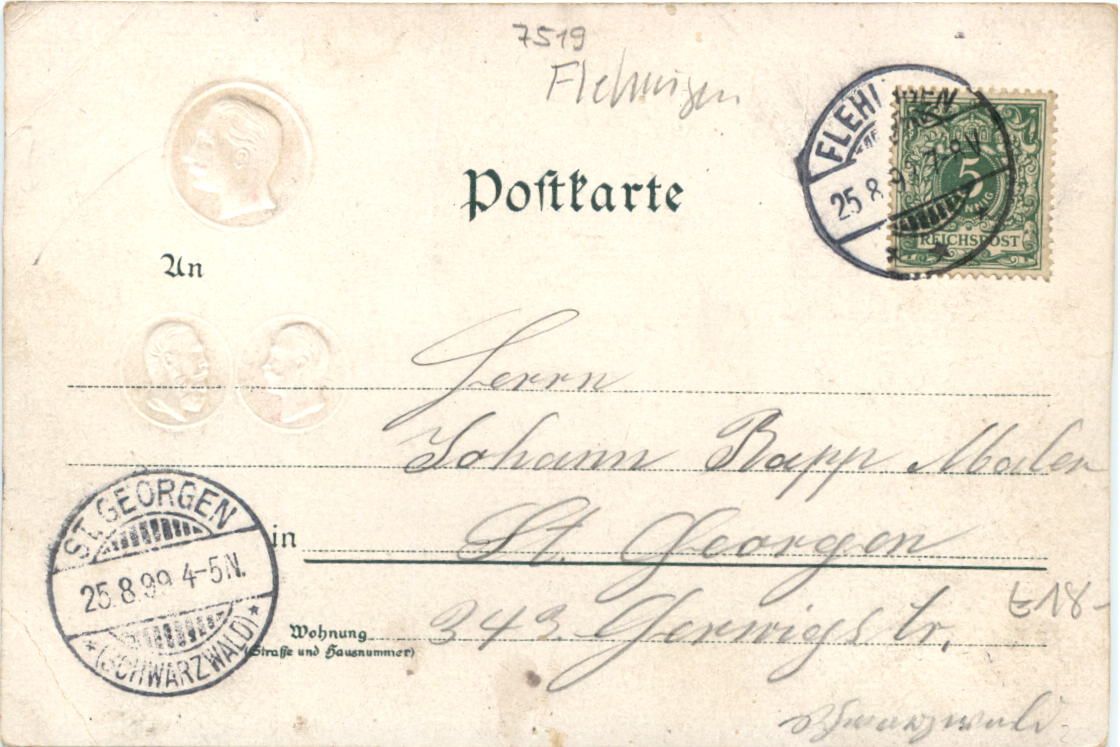 7519
Flehingen
Postkarte
FLEHINGEN
25.8.99 7-8V
5
REICHSPOST
An
Herrn
Johann Rapp Maler
in St. Georgen
343 Gerwigstr.
Wohnung
(Straße und Hausnummer)
Schwarzwald
ST. GEORGEN
25.8.99 4-5N.
*(SCHWARZWALD)*
18-